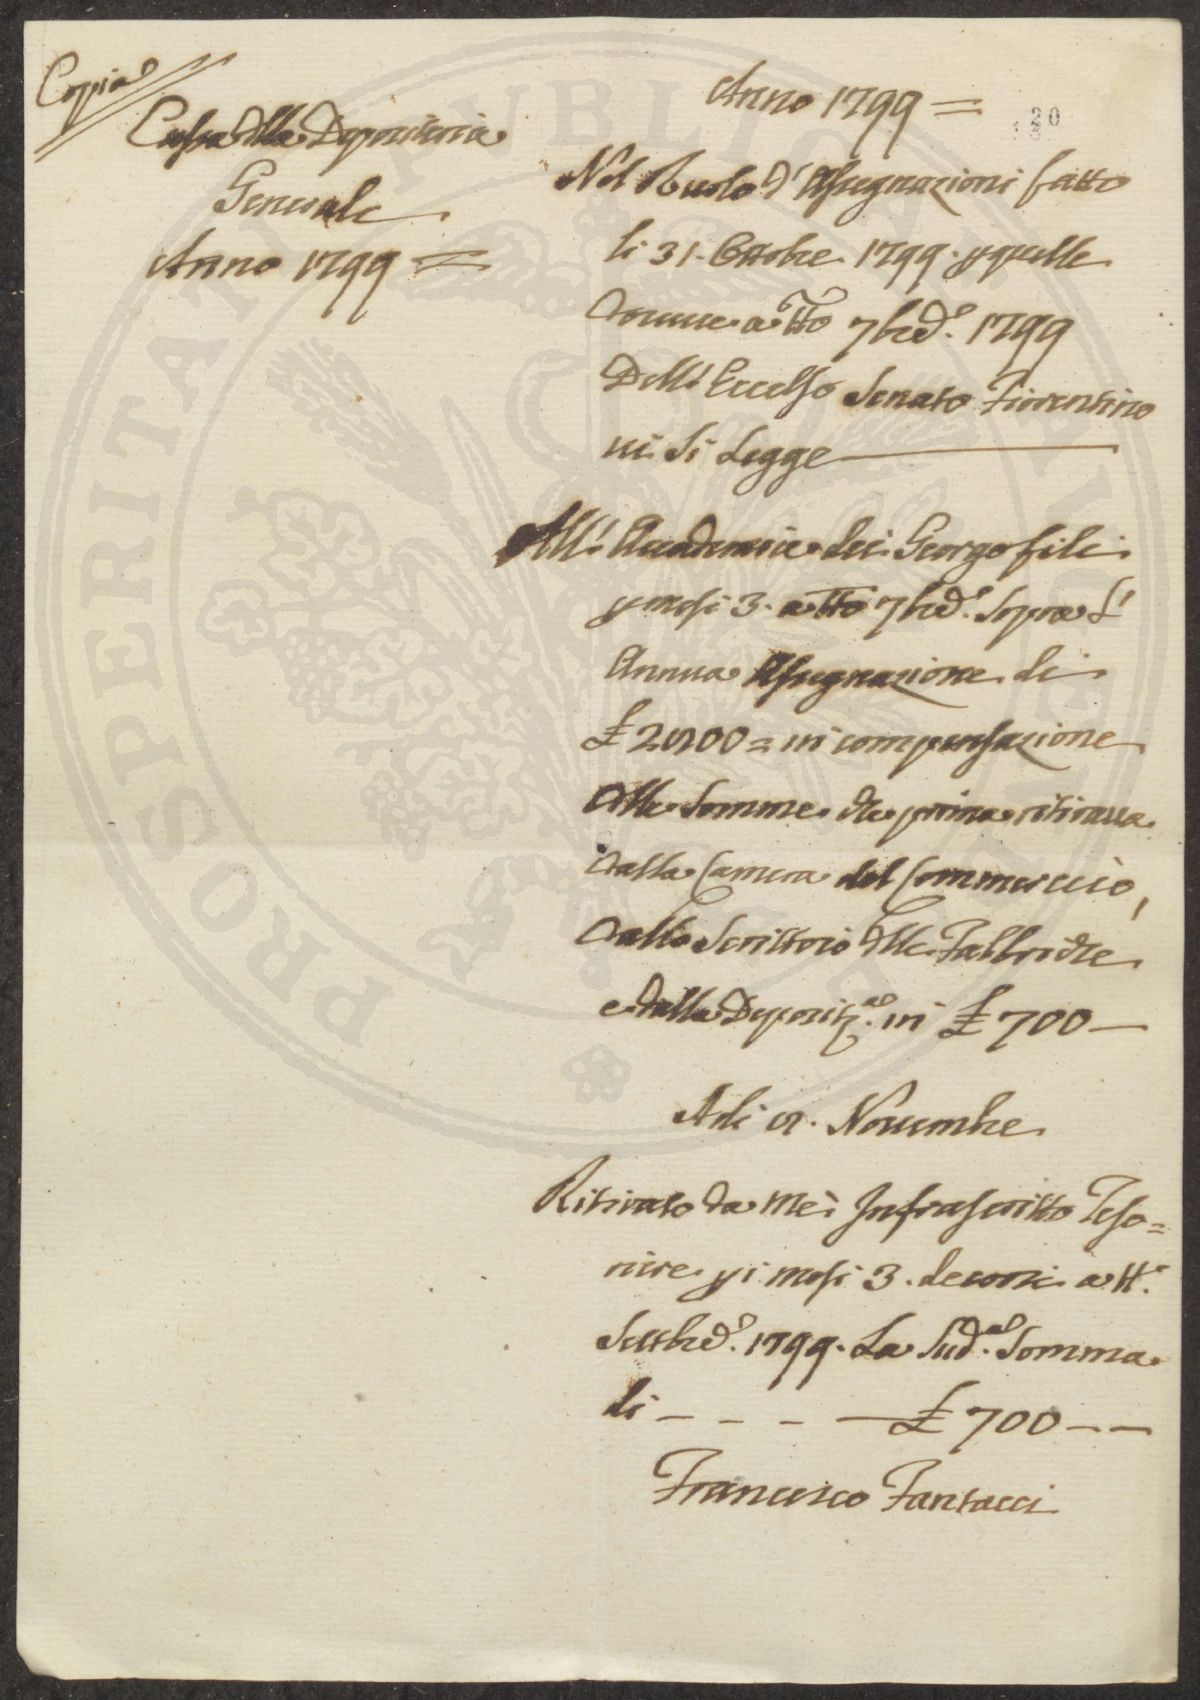 Copia
Cassa della Depositeria
Generale
Anno 1799 =
Anno 1799 =
20
Nel Ruolo d'Assegnazioni fatto
li 31. Ottobre 1799. p quelle
decorse a tto 7bre d.o 1799
Dell'Eccelso Senato Fiorentino
vi si Legge
All'Accademia dei Georgofili
p mesi 3. a tto 7bre d.o Sopra L'
Annua Assegnazione di
£ 2800 = in compensazione
delle Somme che prima ritirava
dalla Camera del Commercio,
dallo Scrittoio delle Fabbriche
e dalla Deposit.a in £ 700 —
Adi 8. Novembre
Ritirato da me Infrascritto Teso=
riere p i mesi 3. decorsi a tt.o
Settbre d.o 1799. La Sud.a Somma
di - - - — £ 700 — —
Francesco Fantacci
PROSPERITATI PUBLICAE